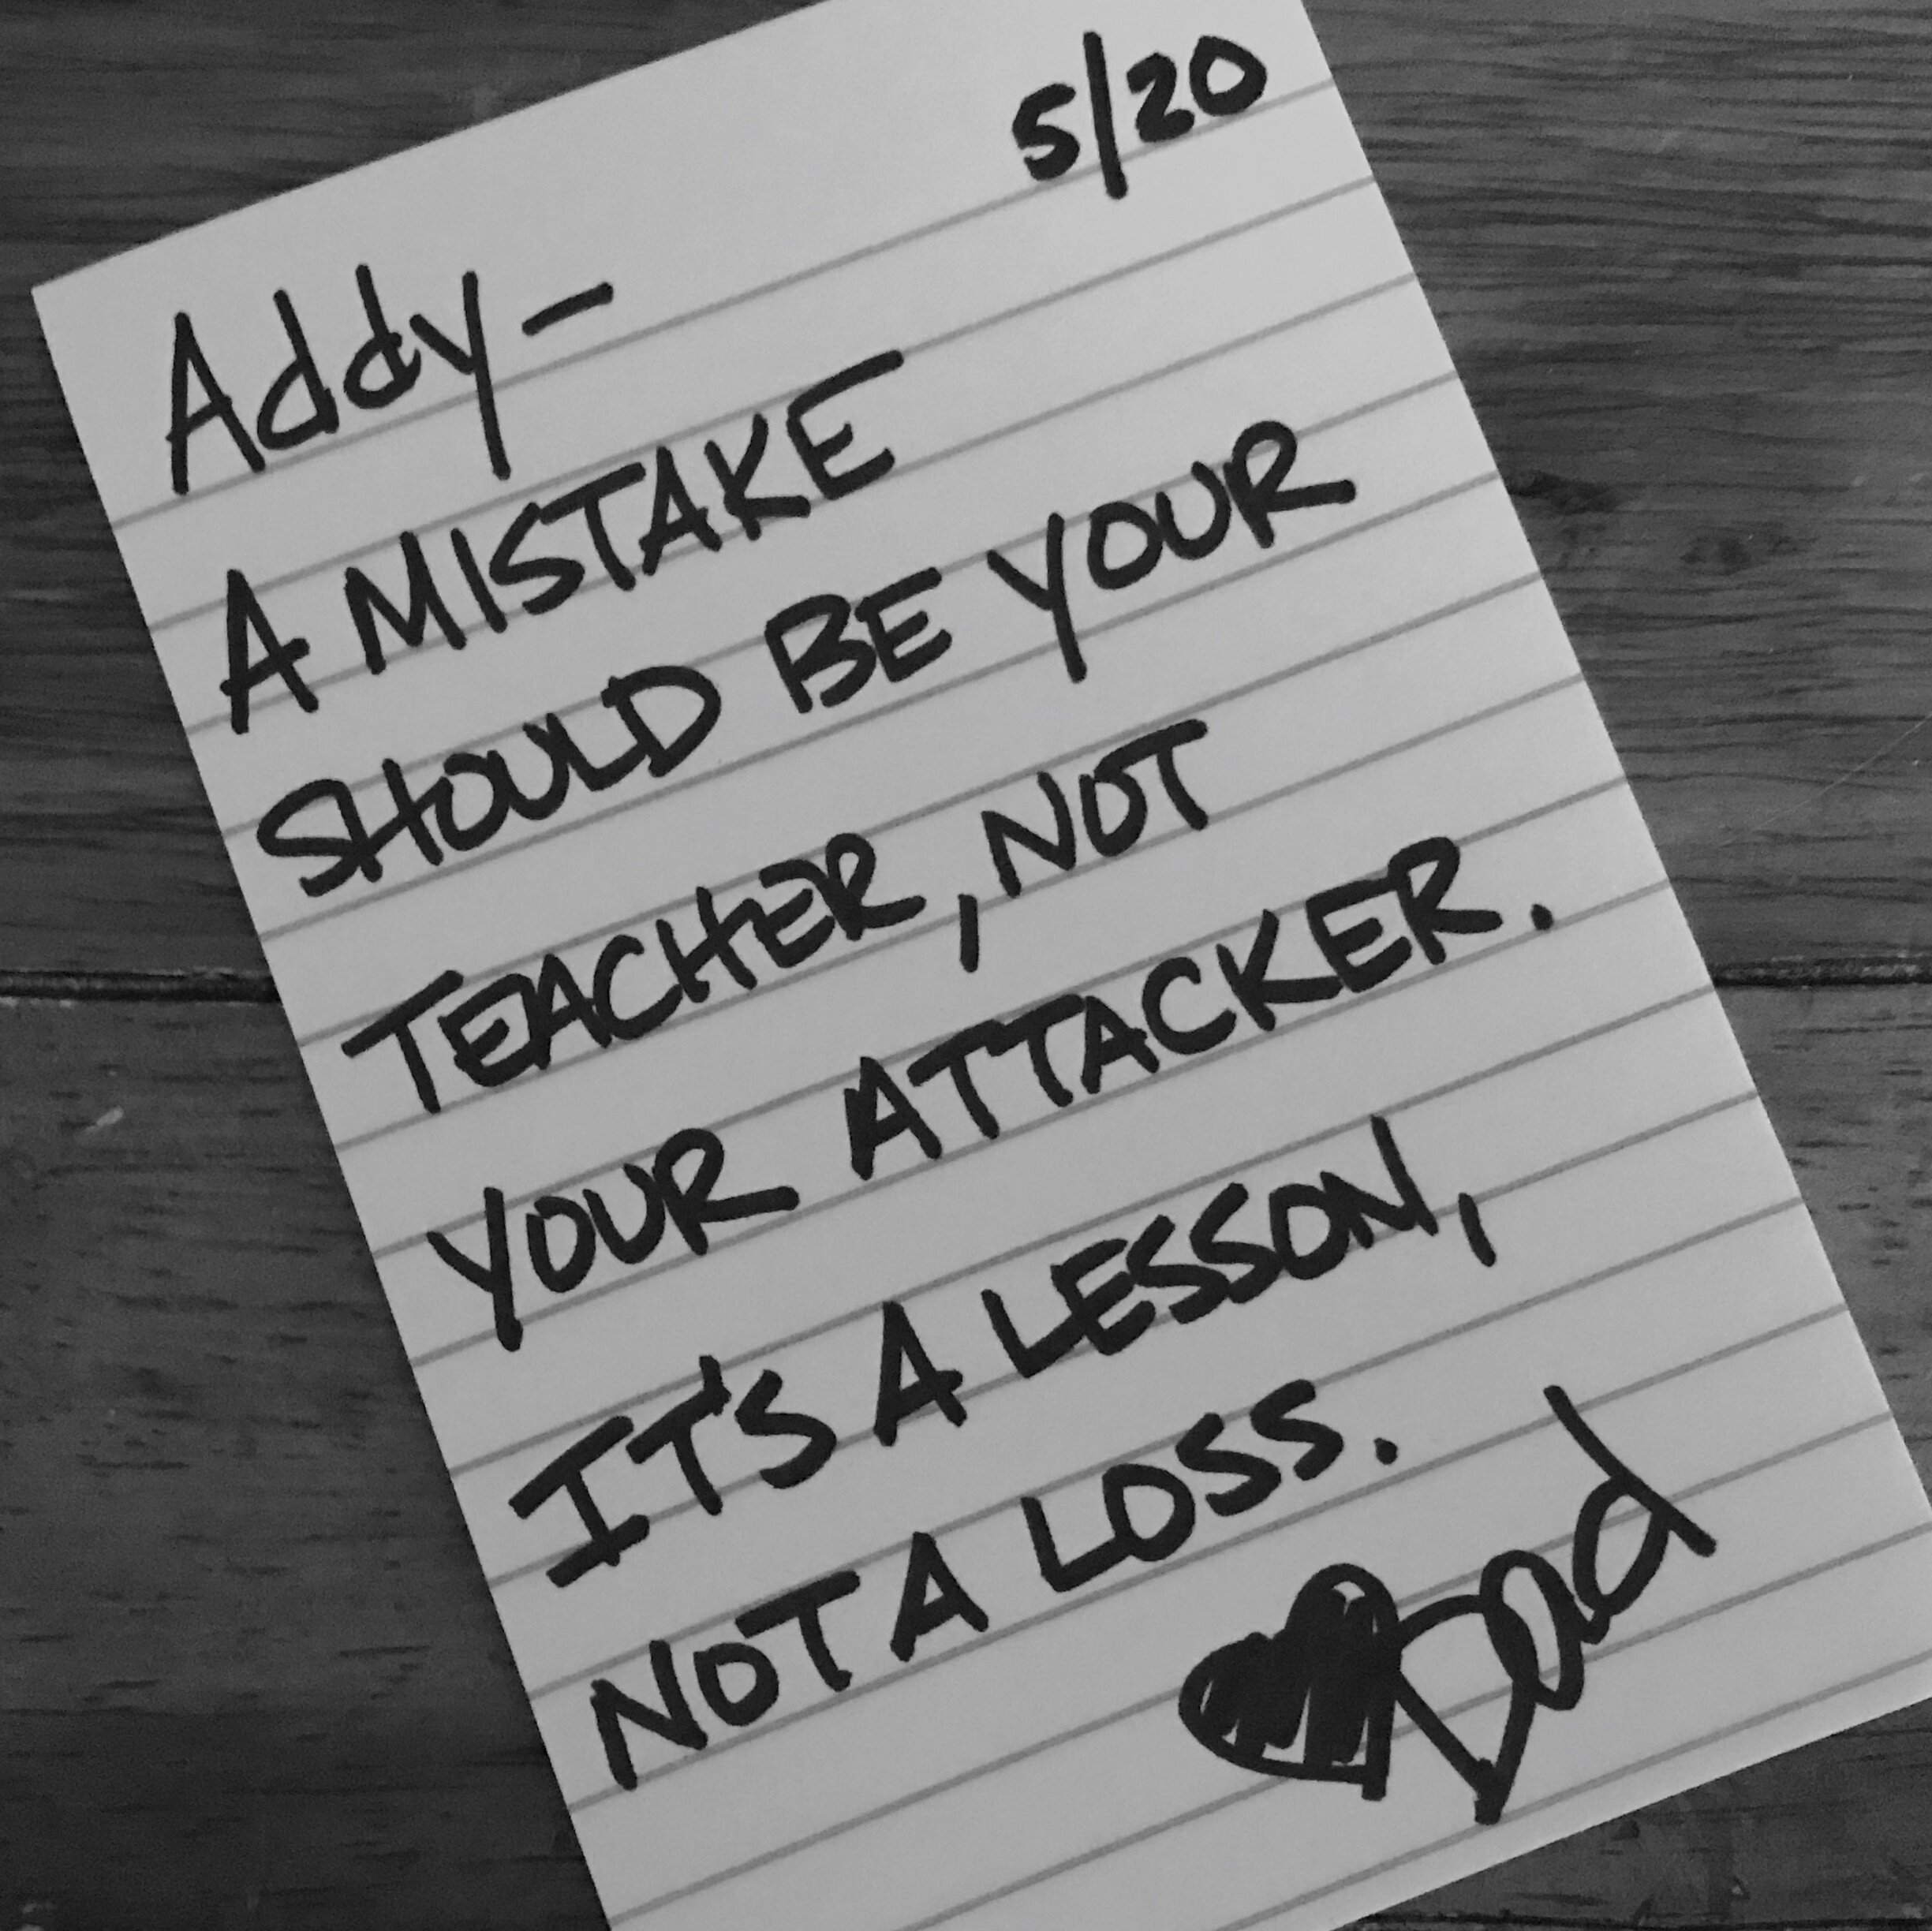 5/20
Addy-
A MISTAKE
SHOULD BE YOUR
TEACHER, NOT
YOUR ATTACKER.
IT'S A LESSON,
NOT A LOSS.
Dad